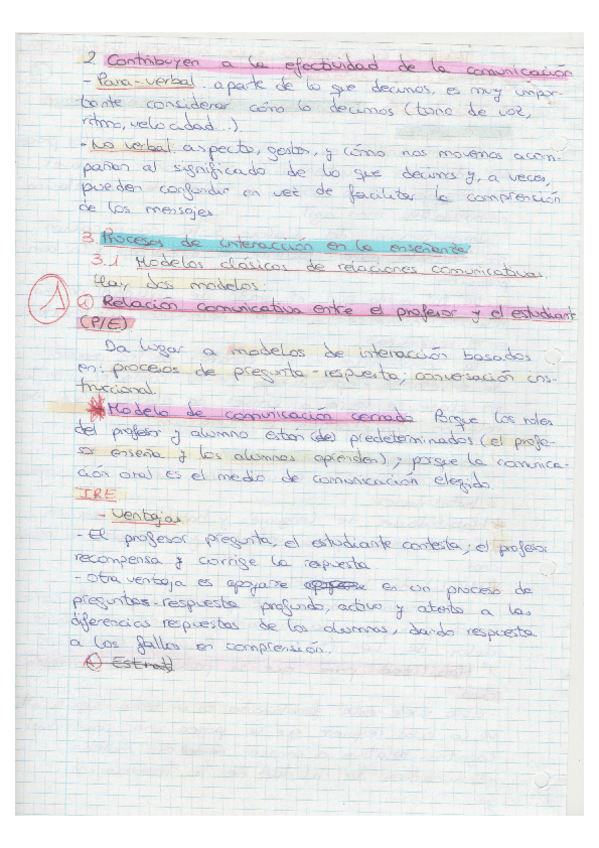 2. Contribuyen a la efectividad de la comunicación
- Para-verbal: aparte de lo que decimos, es muy impor-
tante considerar cómo lo decimos (tono de voz,
ritmo, velocidad...)
- No verbal: aspecto, gestos, y cómo nos movemos acom-
pañan al significado de lo que decimos y, a veces,
pueden confundir en vez de facilitar la comprensión
de los mensajes
3. Procesos de interacción en la enseñanza
3.1 Modelos clásicos de relaciones comunicativas.
Hay dos modelos:
1 Relación comunicativa entre el profesor y el estudiante
(P/E)
Da lugar a modelos de interacción basados
en: procesos de pregunta-respuesta, conversación ins-
truccional.
* Modelo de comunicación cerrado Porque los roles
del profesor y alumno están (de) predeterminados (el profe-
sor enseña y los alumnos aprenden); porque la comunica-
ción oral es el medio de comunicación elegido.
IRE
- Ventajas
- El profesor pregunta, el estudiante contesta; el profesor
recompensa y corrige la respuesta.
- otra ventaja es apoyarse en un proceso de
preguntas-respuesta profundo, activo y atento a las
diferencias respuestas de los alumnos, dando respuesta
a los fallos en comprensión.